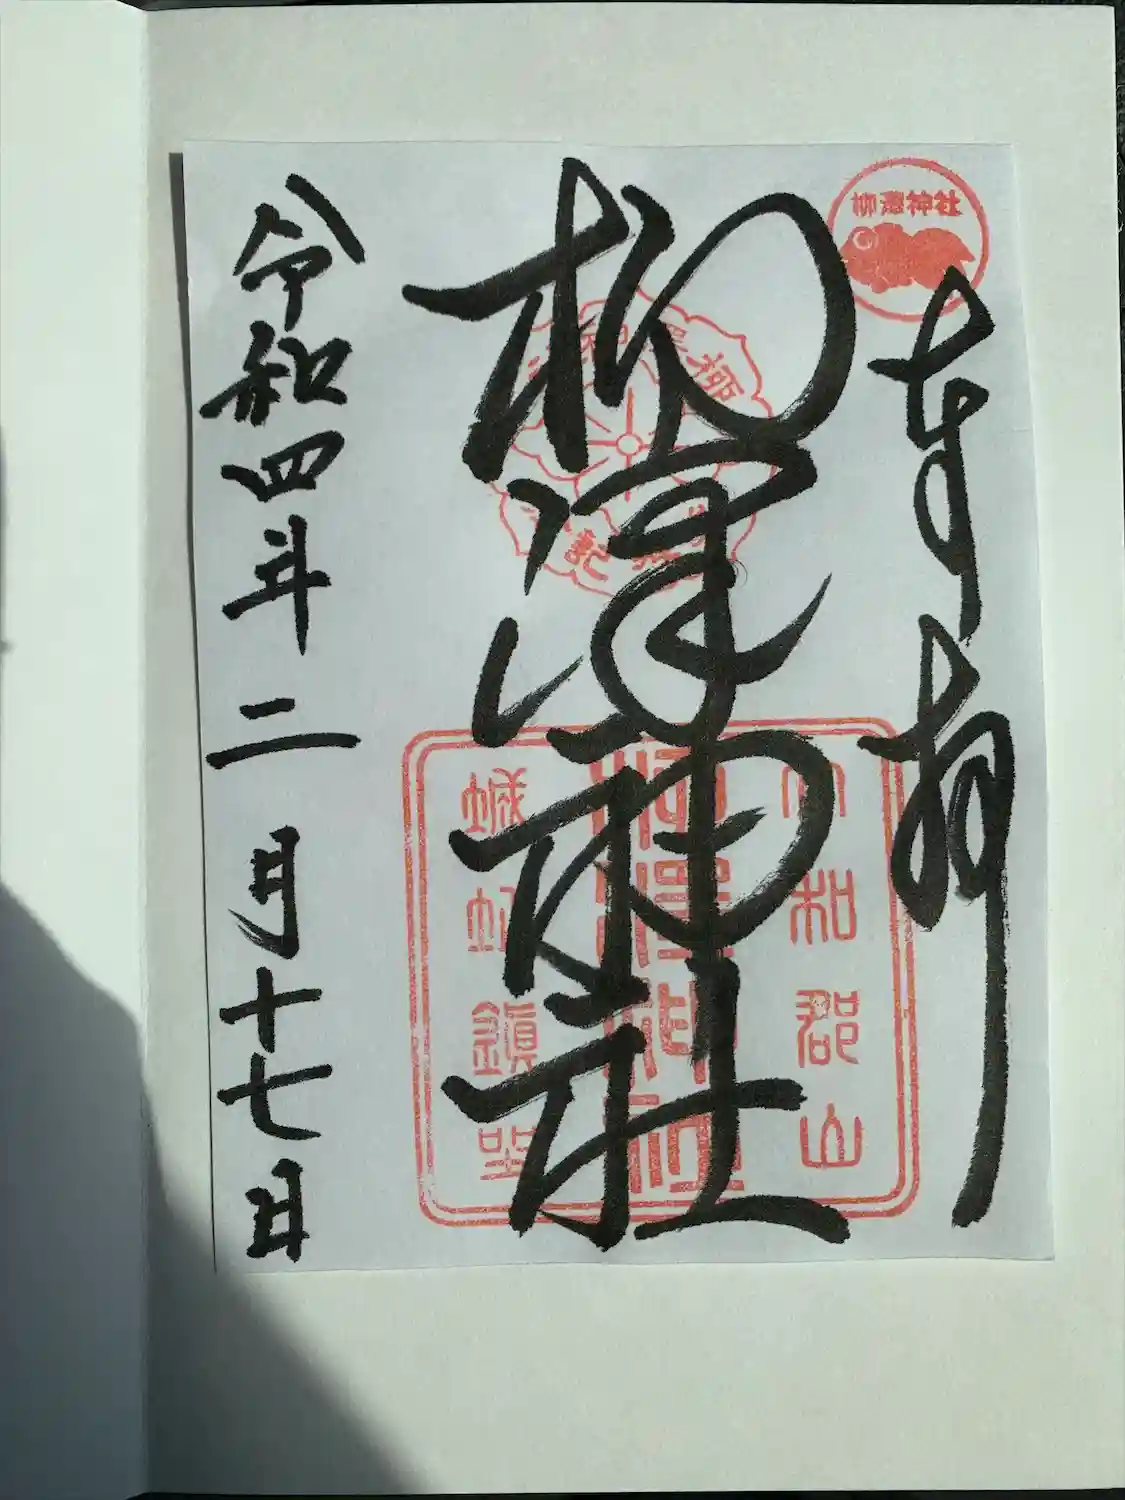 奉拝
柳澤神社
令和四年二月十七日
柳澤神社
大和郡山
柳澤神社
城址鎮座